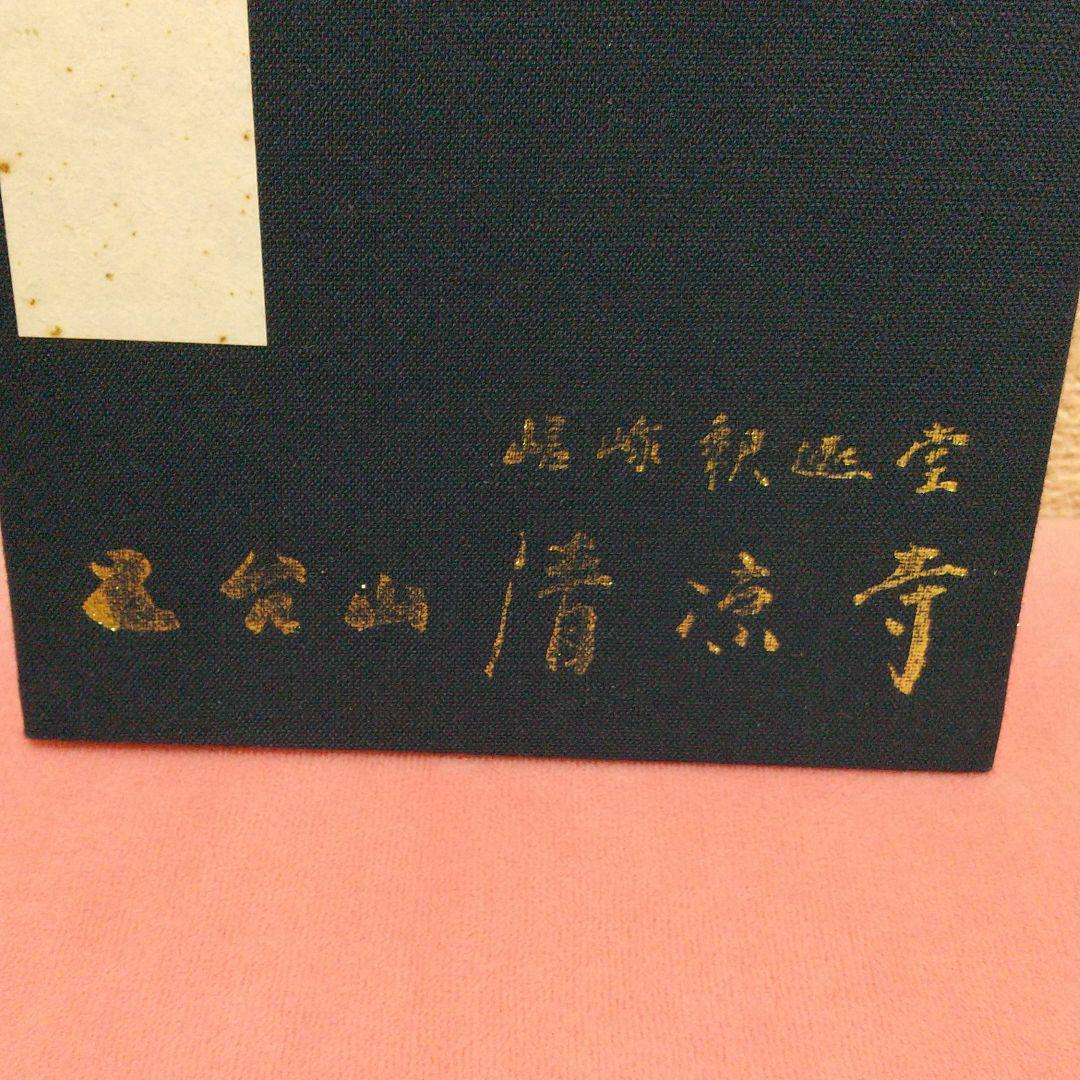 嵯峨釈迦堂
五台山清凉寺